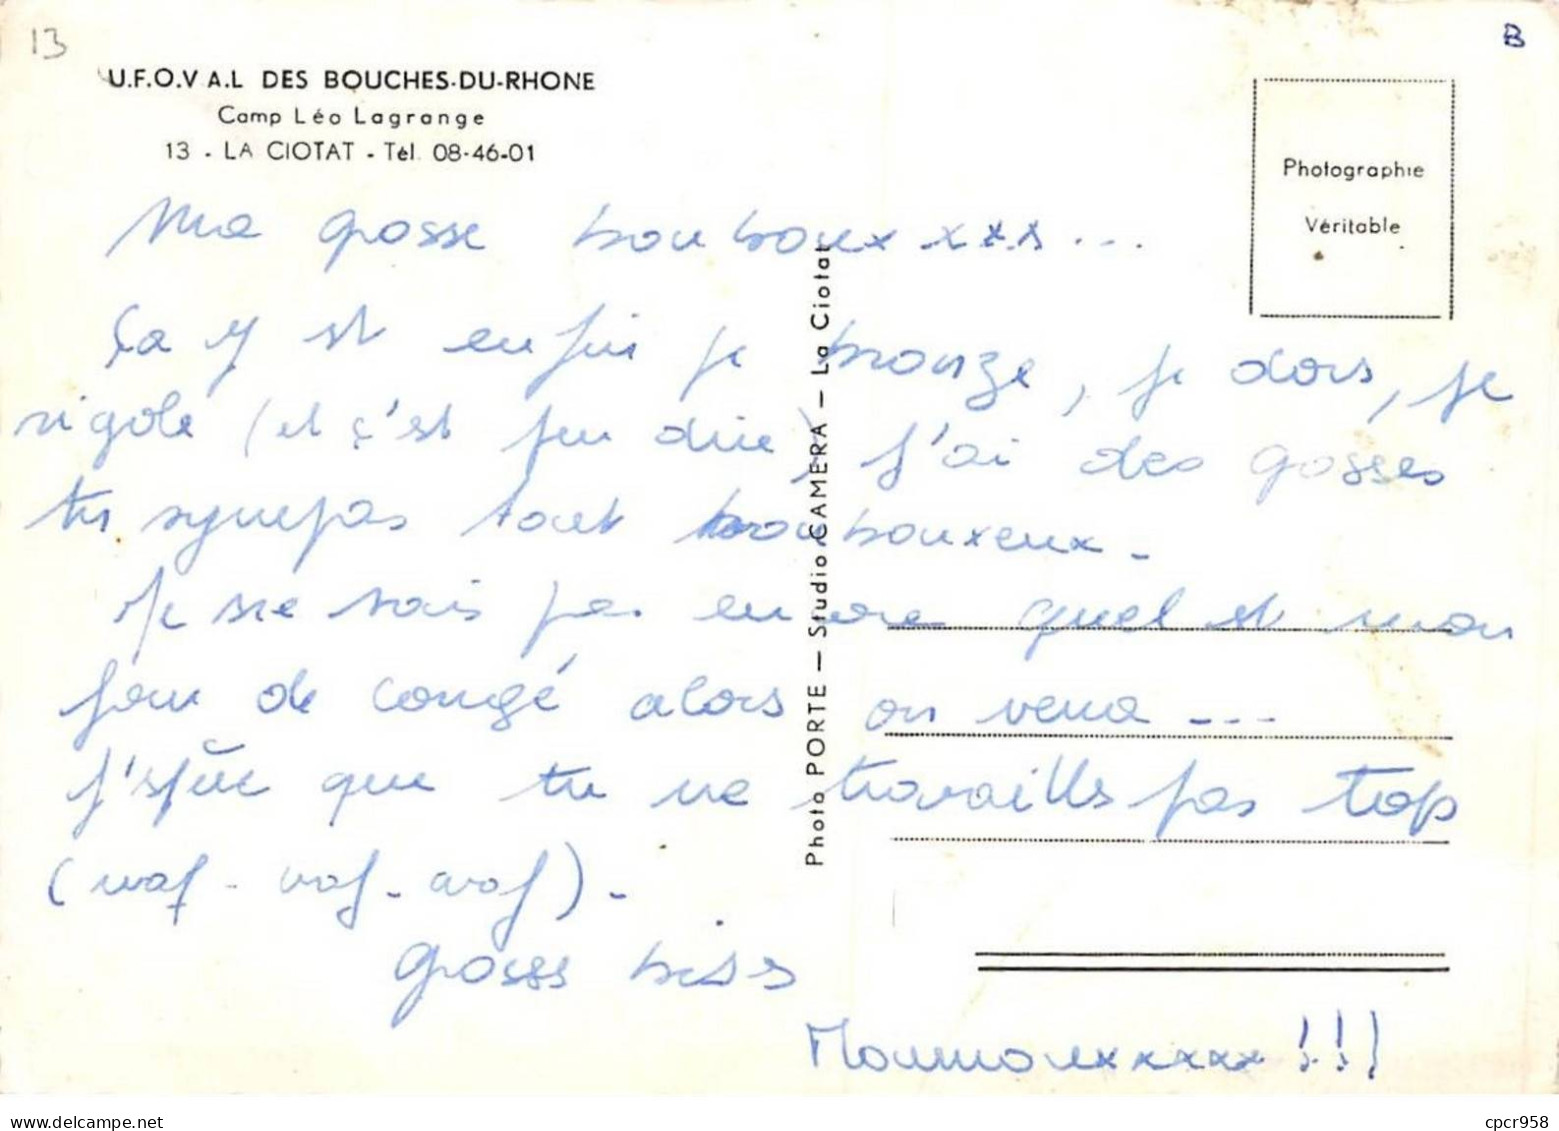 13
B
U.F.O.V A.L DES BOUCHES-DU-RHONE
Camp Léo Lagrange
13 - LA CIOTAT - Tél. 08-46-01
Photographie
Véritable
Ma gosse bouboux x x x s ...
Ça y est enfin je bronze, je dors, je
rigole (et c'est peu dire) j'ai des gosses
trs sympas tout bouxeux -
Je ne sais pas encore quel est mon
jour de congé alors on vera ---
J'spère que tu ne travaills pas trop
(waf - vaf - wof) -
gosss biss
Moumouxxxxxx !!!
Photo PORTE — Studio CAMERA — La Ciotat
www.delcampe.net
cpcr958